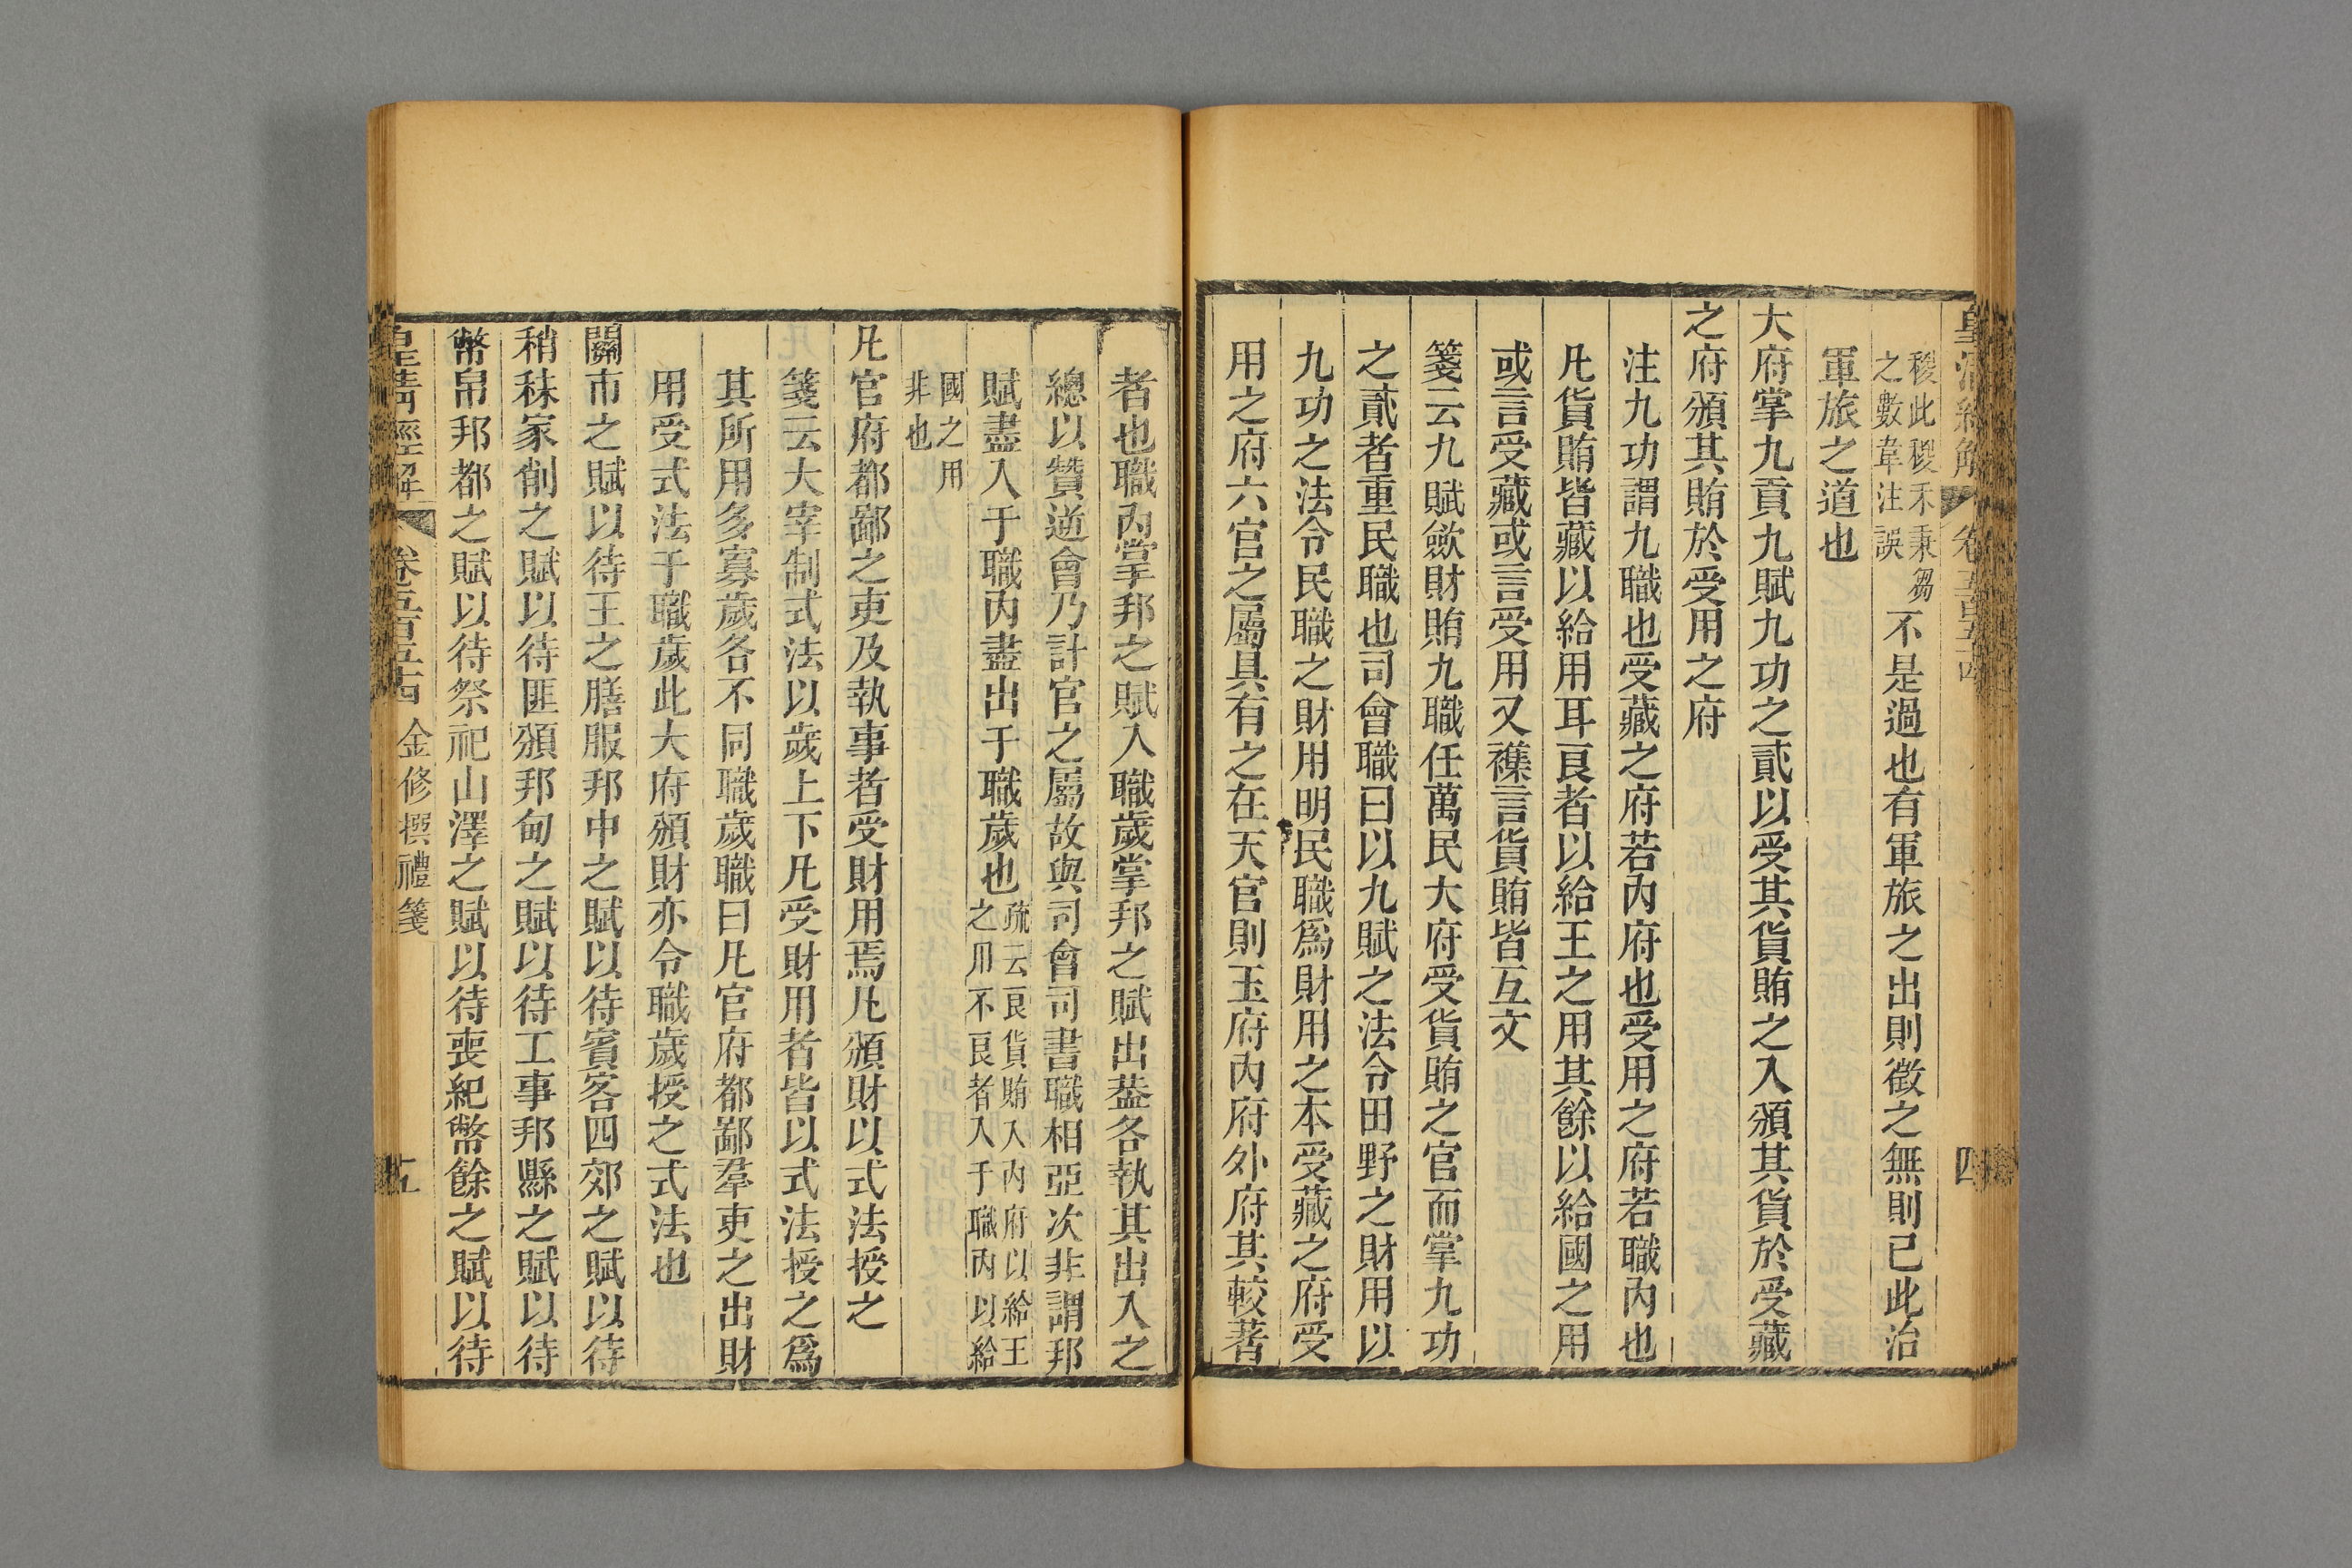 皇清經解 卷五百五十四 四
稷此稷禾秉芻
之數韋注誤
不是過也有軍旅之出則徵之無則已此治
軍旅之道也
大府掌九貢九賦九功之貳以受其貨賄之入頒其貨於受藏
之府頒其賄於受用之府
注九功謂九職也受藏之府若內府也受用之府若職內也
凡貨賄皆藏以給用耳良者以給王之用其餘以給國之用
或言受藏或言受用又襍言貨賄皆互文
箋云九賦斂財賄九職任萬民大府受貨賄之官而掌九功
之貳者重民職也司會職曰以九賦之法令田野之財用以
九功之法令民職之財用明民職爲財用之本受藏之府受
用之府六官之屬具有之在天官則玉府內府外府其較著
者也職內掌邦之賦入職歲掌邦之賦出葢各執其出入之
總以贊逆會乃計官之屬故與司會司書職相亞次非謂邦
賦盡入于職內盡出于職歲也
疏云良貨賄入內府以給王
之用不良者入于職內以給
國之用
非也
凡官府都鄙之吏及執事者受財用焉凡頒財以式法授之
箋云大宰制式法以歲上下凡受財用者皆以式法授之爲
其所用多寡歲各不同職歲職曰凡官府都鄙羣吏之出財
用受式法于職歲此大府頒財亦令職歲授之式法也
關市之賦以待王之膳服邦中之賦以待賓客四郊之賦以待
稍秣家削之賦以待匪頒邦甸之賦以待工事邦縣之賦以待
幣帛邦都之賦以待祭祀山澤之賦以待喪紀幣餘之賦以待
皇清經解 卷五百五十四 金修撰禮箋 五